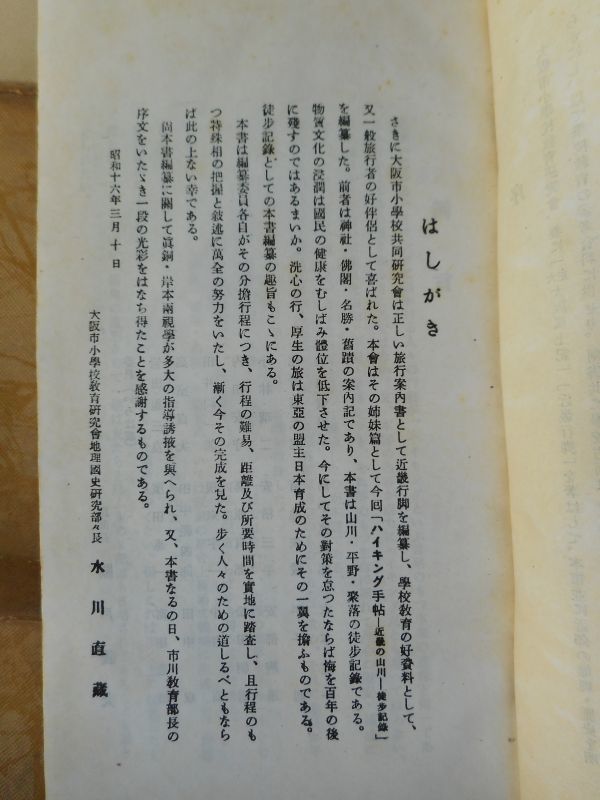 はしがき
さきに大阪市小學校共同研究會は正しい旅行案內書として近畿行脚を編纂し、學校敎育の好資料として、
又一般旅行者の好伴侶として喜ばれた。本會はその姉妹篇として今回「ハイキング手帖―近畿の山川―徒步記錄」
を編纂した。前者は神社・佛閣・名勝・舊蹟の案內記であり、本書は山川・平野・聚落の徒步記錄である。
物質文化の浸潤は國民の健康をむしばみ體位を低下させた。今にしてその對策を怠つたならば悔を百年の後
に殘すのではあるまいか。洗心の行、厚生の旅は東亞の盟主日本育成のためにその一翼を擔ふものである。
徒步記錄としての本書編纂の趣旨もこゝにある。
本書は編纂委員各自がその分擔行程につき、行程の難易、距離及び所要時間を實地に踏査し、且行程のも
つ特殊相の把握と敍述に萬全の努力をいたし、漸く今その完成を見た。步く人々のための道しるべともなら
ば此の上ない幸である。
尙本書編纂に關して眞銅・岸本兩視學が多大の指導誘掖を與へられ、又、本書なるの日、市川敎育部長の
序文をいたゞき一段の光彩をはなち得たことを感謝するものである。
昭和十六年三月十日
大阪市小學校敎育硏究會地理國史硏究部々長 水川直藏